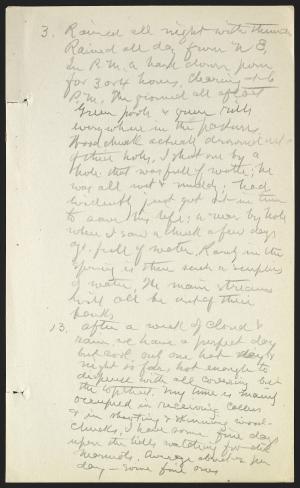 3. Rained all night with thunder
Rained all day from N E.
In P.M. a hard down pour
for 3 or 4 hours, clearing at 6
P.M. The ground all afloat
Green pools & green rills
everywhere in the pastures.
Woodchucks actually drowned out
of their holes, I shot one by a
hole that was full of water; he
was all wet & muddy; had
evidently just got out in time
to save his life; a near by hole
where I saw a chuck a few days
ago, full of water. Rarely in the
Spring is there such a surplus
of water. The main streams
will all be out of their
banks
13. After a week of cloud &
rain, we have a perfect day
but cool, but one hot day &
night so far, hot enough to
dispense with all covering but
the sheet. My time is mainly
occupied in receiving callers
& in shooting & skinning wood-
chucks, I have some fine days
upon the hills watching for
marmots. Average about one per
day — some fine ones